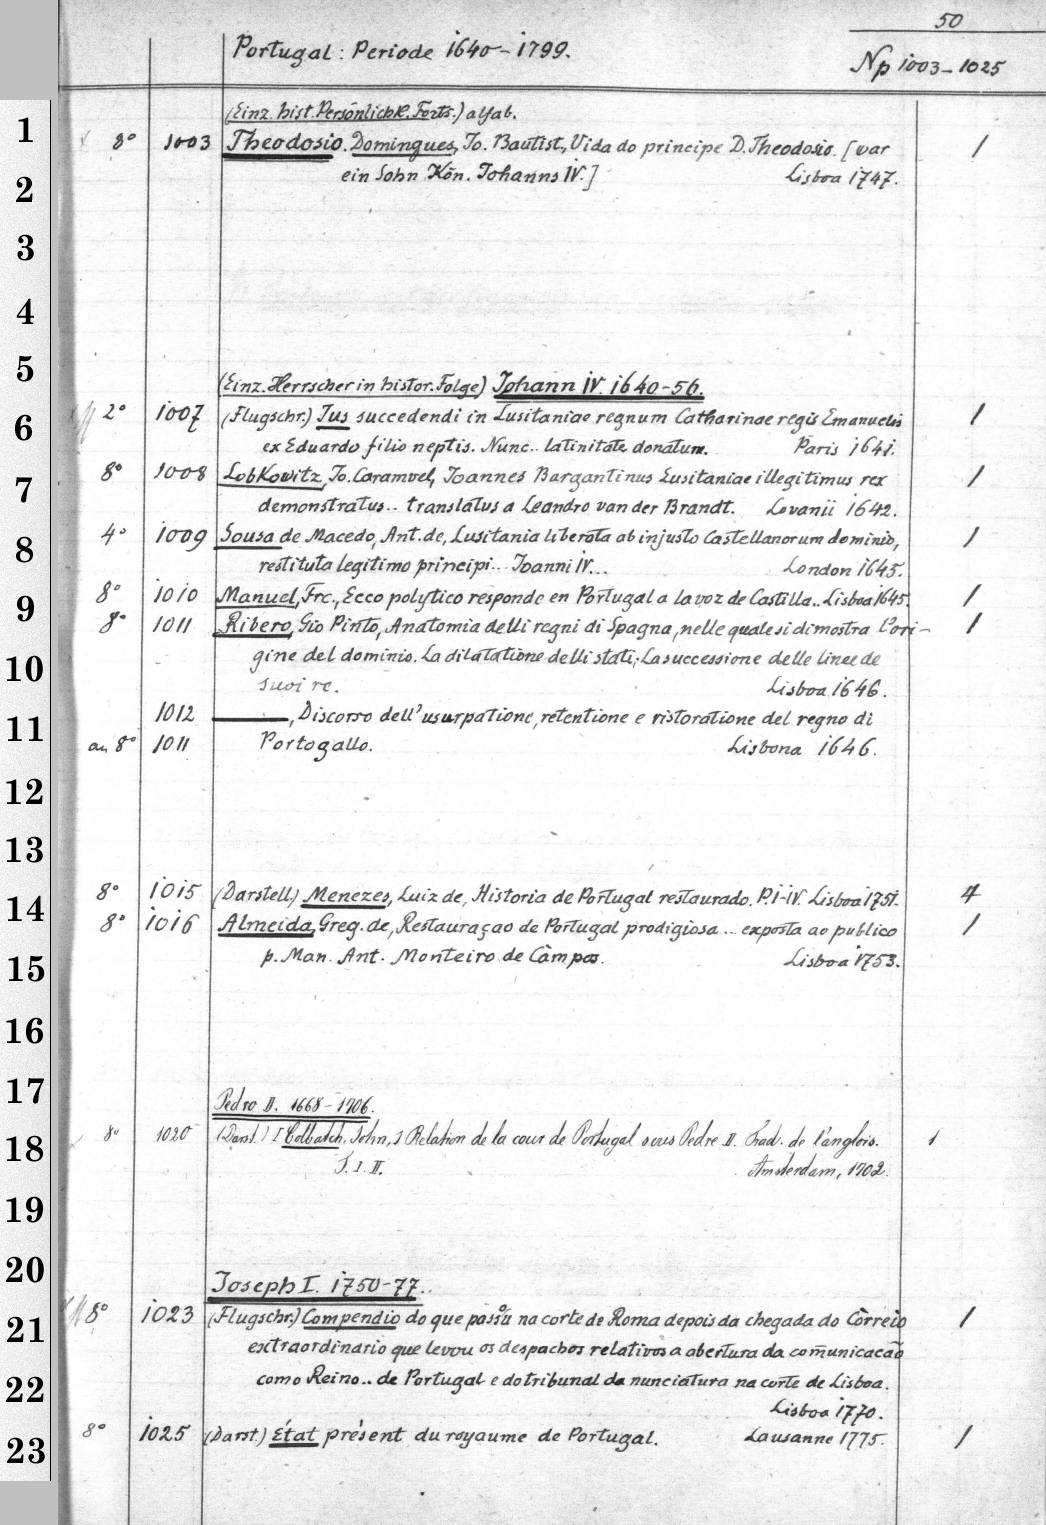 50
Portugal: Periode 1640-1799.
Np 1003-1025
(Einz. hist. Persönlichk. Forts.) alfab.
1
8° 1003 Theodosio. Domingues, Jo. Bautist., Vida do principe D. Theodosio. [war 1
2
ein Sohn Kön. Johanns IV.] Lisboa 1747.
3
4
5
(Einz. Herrscher in histor. Folge) Johann IV. 1640-56.
6
2° 1007 (Flugschr.) Jus succedendi in Lusitaniae regnum Catharinae regis Emanuelis 1
ex Eduardo filio neptis. Nunc.. latinitate donatum. Paris 1641.
7
8° 1008 Lobkowitz, Jo. Caramuel, Joannes Bargantinus Lusitaniae illegitimus rex 1
demonstratus.. translatus a Leandro van der Brandt. Lovanii 1642.
8
4° 1009 Sousa de Macedo, Ant. de, Lusitania liberata ab injusto Castellanorum dominio, 1
restituta legitimo principi... Joanni IV... London 1645.
9
8° 1010 Manuel, Frc., Ecco polytico responde en Portugal a la voz de Castilla.. Lisboa 1645. 1
8° 1011 Ribero, Gio Pinto, Anatomia delli regni di Spagna, nelle quale si dimostra l'ori- 1
10
gine del dominio. La dilatatione delli stati; La successione delle linee de
suoi re. Lisboa 1646.
11
1012 ———, Discorso dell'usurpatione, retentione e ristoratione del regno di
an 8° 1011 Portogallo. Lisbona 1646.
12
13
14
8° 1015 (Darstell.) Menezes, Luiz de, Historia de Portugal restaurado. P. I-IV. Lisboa 1751. 4
8° 1016 Almeida, Greg. de, Restauraçao de Portugal prodigiosa .. exposta ao publico 1
15
p. Man. Ant. Monteiro de Càmpos. Lisboa 1753.
16
17
Pedro II. 1668-1706.
18
8° 1020 (Darst.) [Colbatch, John,] Relation de la cour de Portugal sous Pedre II. Trad. de l'anglois. 1
T. I. II. Amsterdam, 1702.
19
20
Joseph I. 1750-77.
21
8° 1023 (Flugschr.) Compendio do que passou na corte de Roma depois da chegada do Còrreio 1
extraordinario que levou os despachos relativos a abertura da com̃unicacaõ
22
como Reino.. de Portugal e do tribunal da nunciatura na corte de Lisboa.
Lisboa 1770.
23
8° 1025 (Darst.) État présent du royaume de Portugal. Lausanne 1775. 1